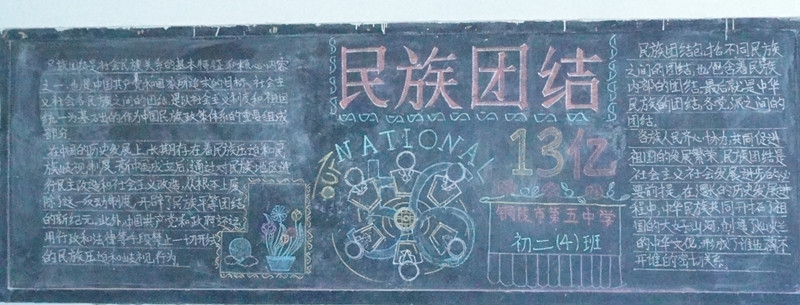 民族团结是社会民族关系的基本特征和核心内容
之一,也是中国共产党和国家所追求的目标。社会主
义社会各民族之间的团结,是以社会主义制度和祖国
统一为基础的,作为中国民族政策体系的重要组成
部分
在中国的历史发展上,长期存在着民族压迫和民
族歧视制度,新中国成立后,通过对民族地区进
行民主改造和社会主义改造,从根本上废
除了这一反动制度,开辟了民族平等团结
的新纪元。此外,中国共产党和政府
用行政和法律等手段禁止一切形式
的民族压迫和歧视行为。
民族团结
NATIONAL
13亿
铜陵市第五中学
初二(4)班
民族团结包括不同民族
之间的团结,也包含着民族
内部的团结,最后就是中华
民族的团结,各党派之间的
团结。
各族人民齐心协力,共同促进
祖国的发展繁荣,民族团结是
社会主义社会发展进步的必
要前提,在漫长的历史发展进
程中,中华民族共同开拓了祖
国的大好山河,创造了灿烂
的中华文化,形成了谁也离不
开谁的密切联系。